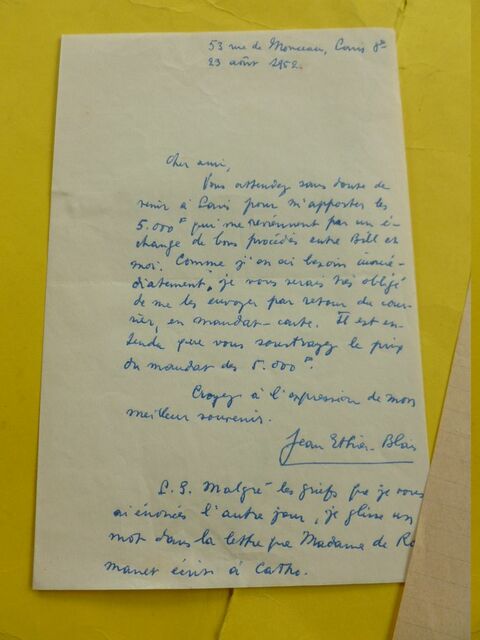 53 rue de Monceau, Paris 8e
23 août 1952.
Cher ami,
Vous attendez sans doute de
venir à Paris pour m'apporter les
5.000 F qui me reviennent par un é-
change de bons procédés entre Bill et
moi. Comme j'en ai besoin immé-
diatement, je vous serais très obligé
de me les envoyer par retour du cour-
rier, en mandat-carte. Il est en-
tendu que vous soustrayez le prix
du mandat des 5.000 F.
Croyez à l'expression de mon
meilleur souvenir.
Jean Ethier-Blais
P.S. Malgré les griefs que je vous
ai énoncés l'autre jour, je glisse un
mot dans la lettre que Madame de Ro
manet écrit à